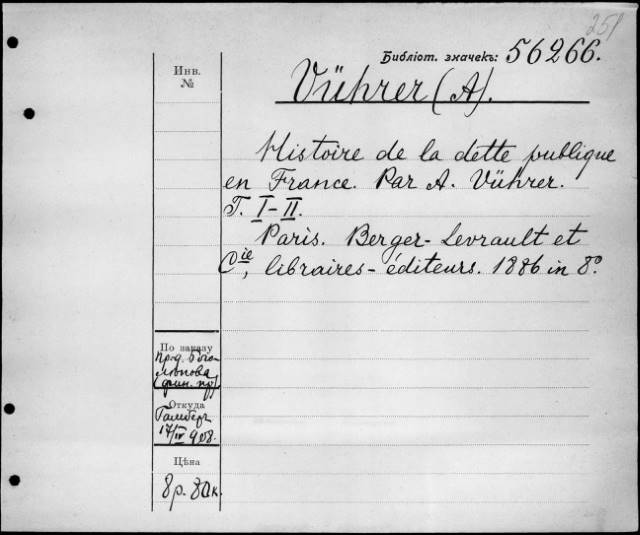 251
Библіот. значекъ: 56266.
Инв.
№
Vührer (A).
Histoire de la dette publique
en France. Par A. Vührer.
T. I-II.
Paris. Berger-Levrault et
Cie, libraires-éditeurs. 1886 in 8º.
По заказу
Прод. Бого-
лѣпова
(фин. пр.)
Откуда
Гамберъ
17/IV 908.
Цѣна
8 р. 80 к.